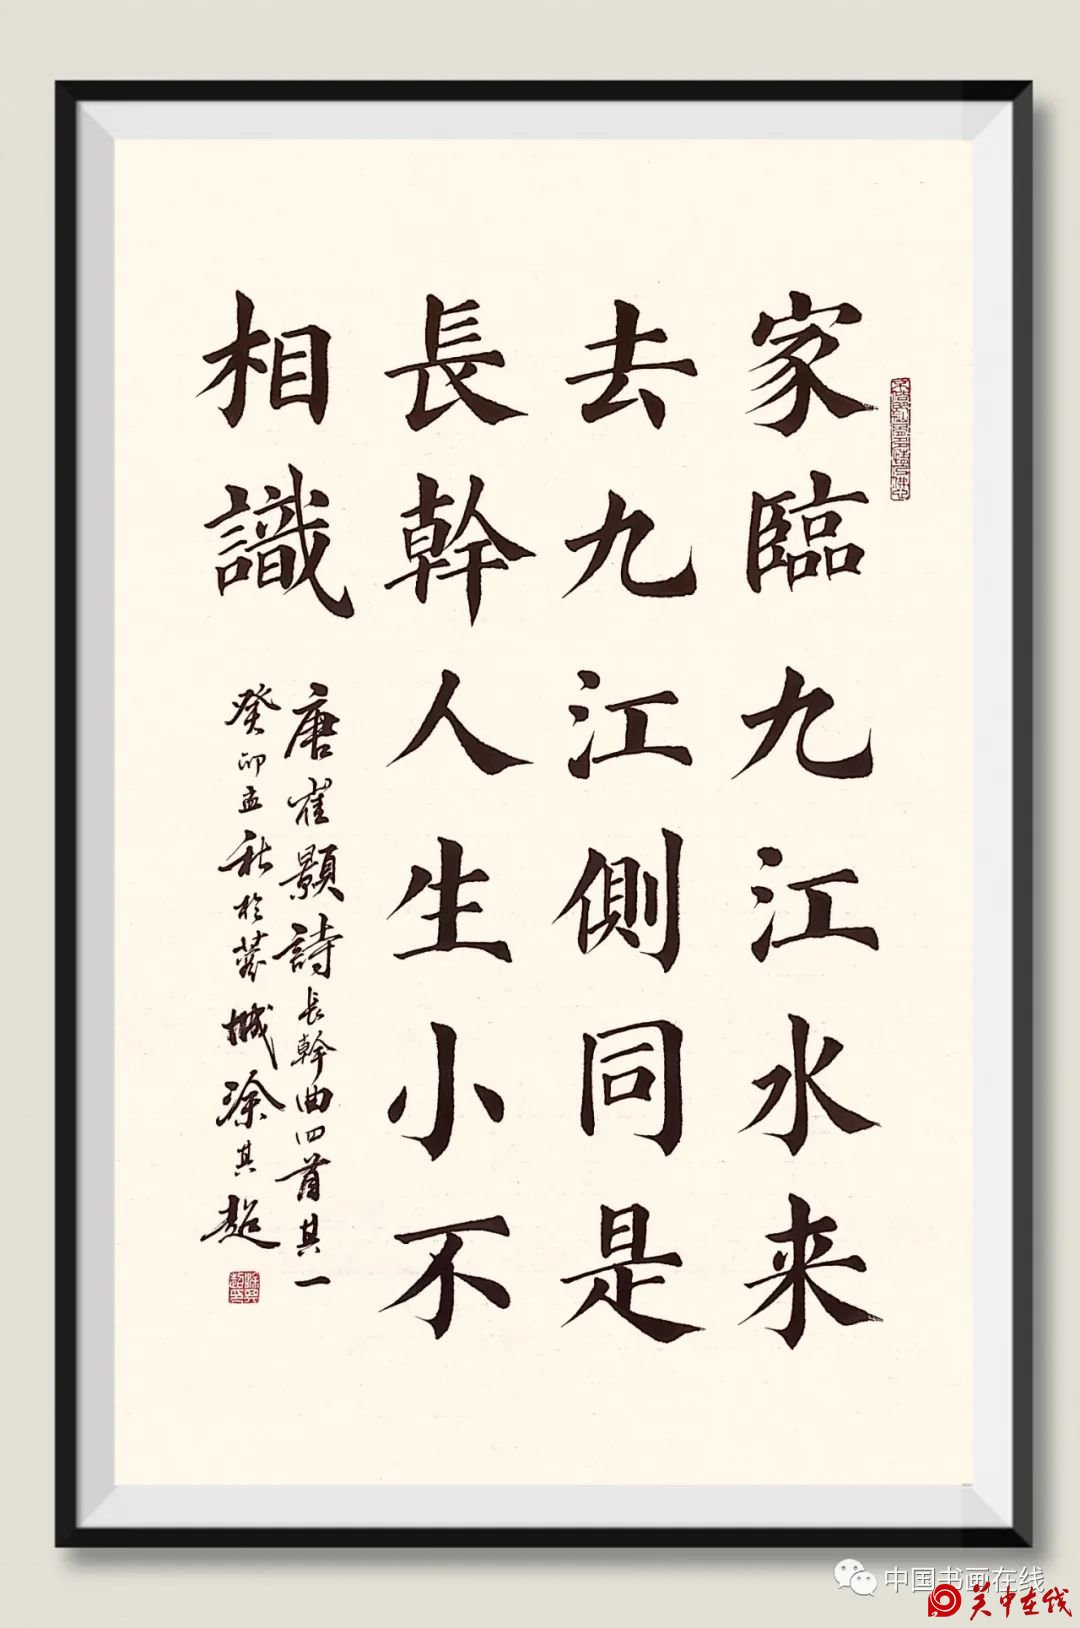 家臨九江水来
去九江側同是
長幹人生小不
相識
唐崔顥詩長幹曲四首其一
癸卯孟秋於蓉城涂其超
中国书画在线
关中在线